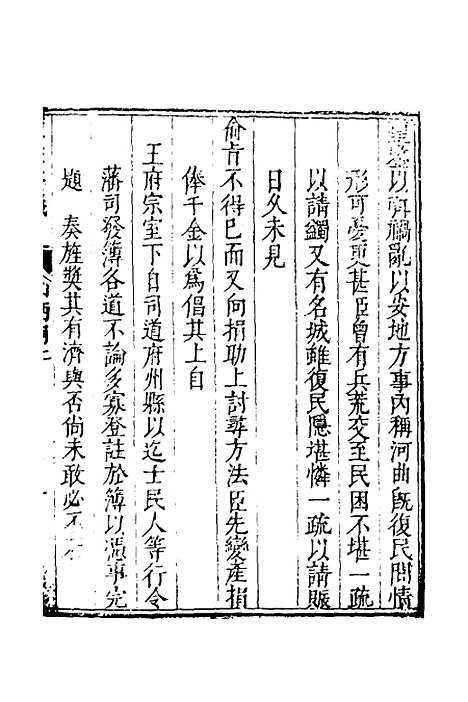 以弭禍亂以安地方事內稱河曲旣復民間情
形可憂更甚臣曾有兵荒交至民困不堪一疏
以請蠲又有名城雖復民隱堪憐一疏以請賑
日久未見
俞旨不得已而又向捐助上討尋方法臣先變產捐
俸千金以爲倡其上自
王府宗室下自司道府州縣以迄士民人等行令
藩司發簿各道不論多寡登註於簿以憑事完
題 奏旌獎其有濟與否尙未敢必